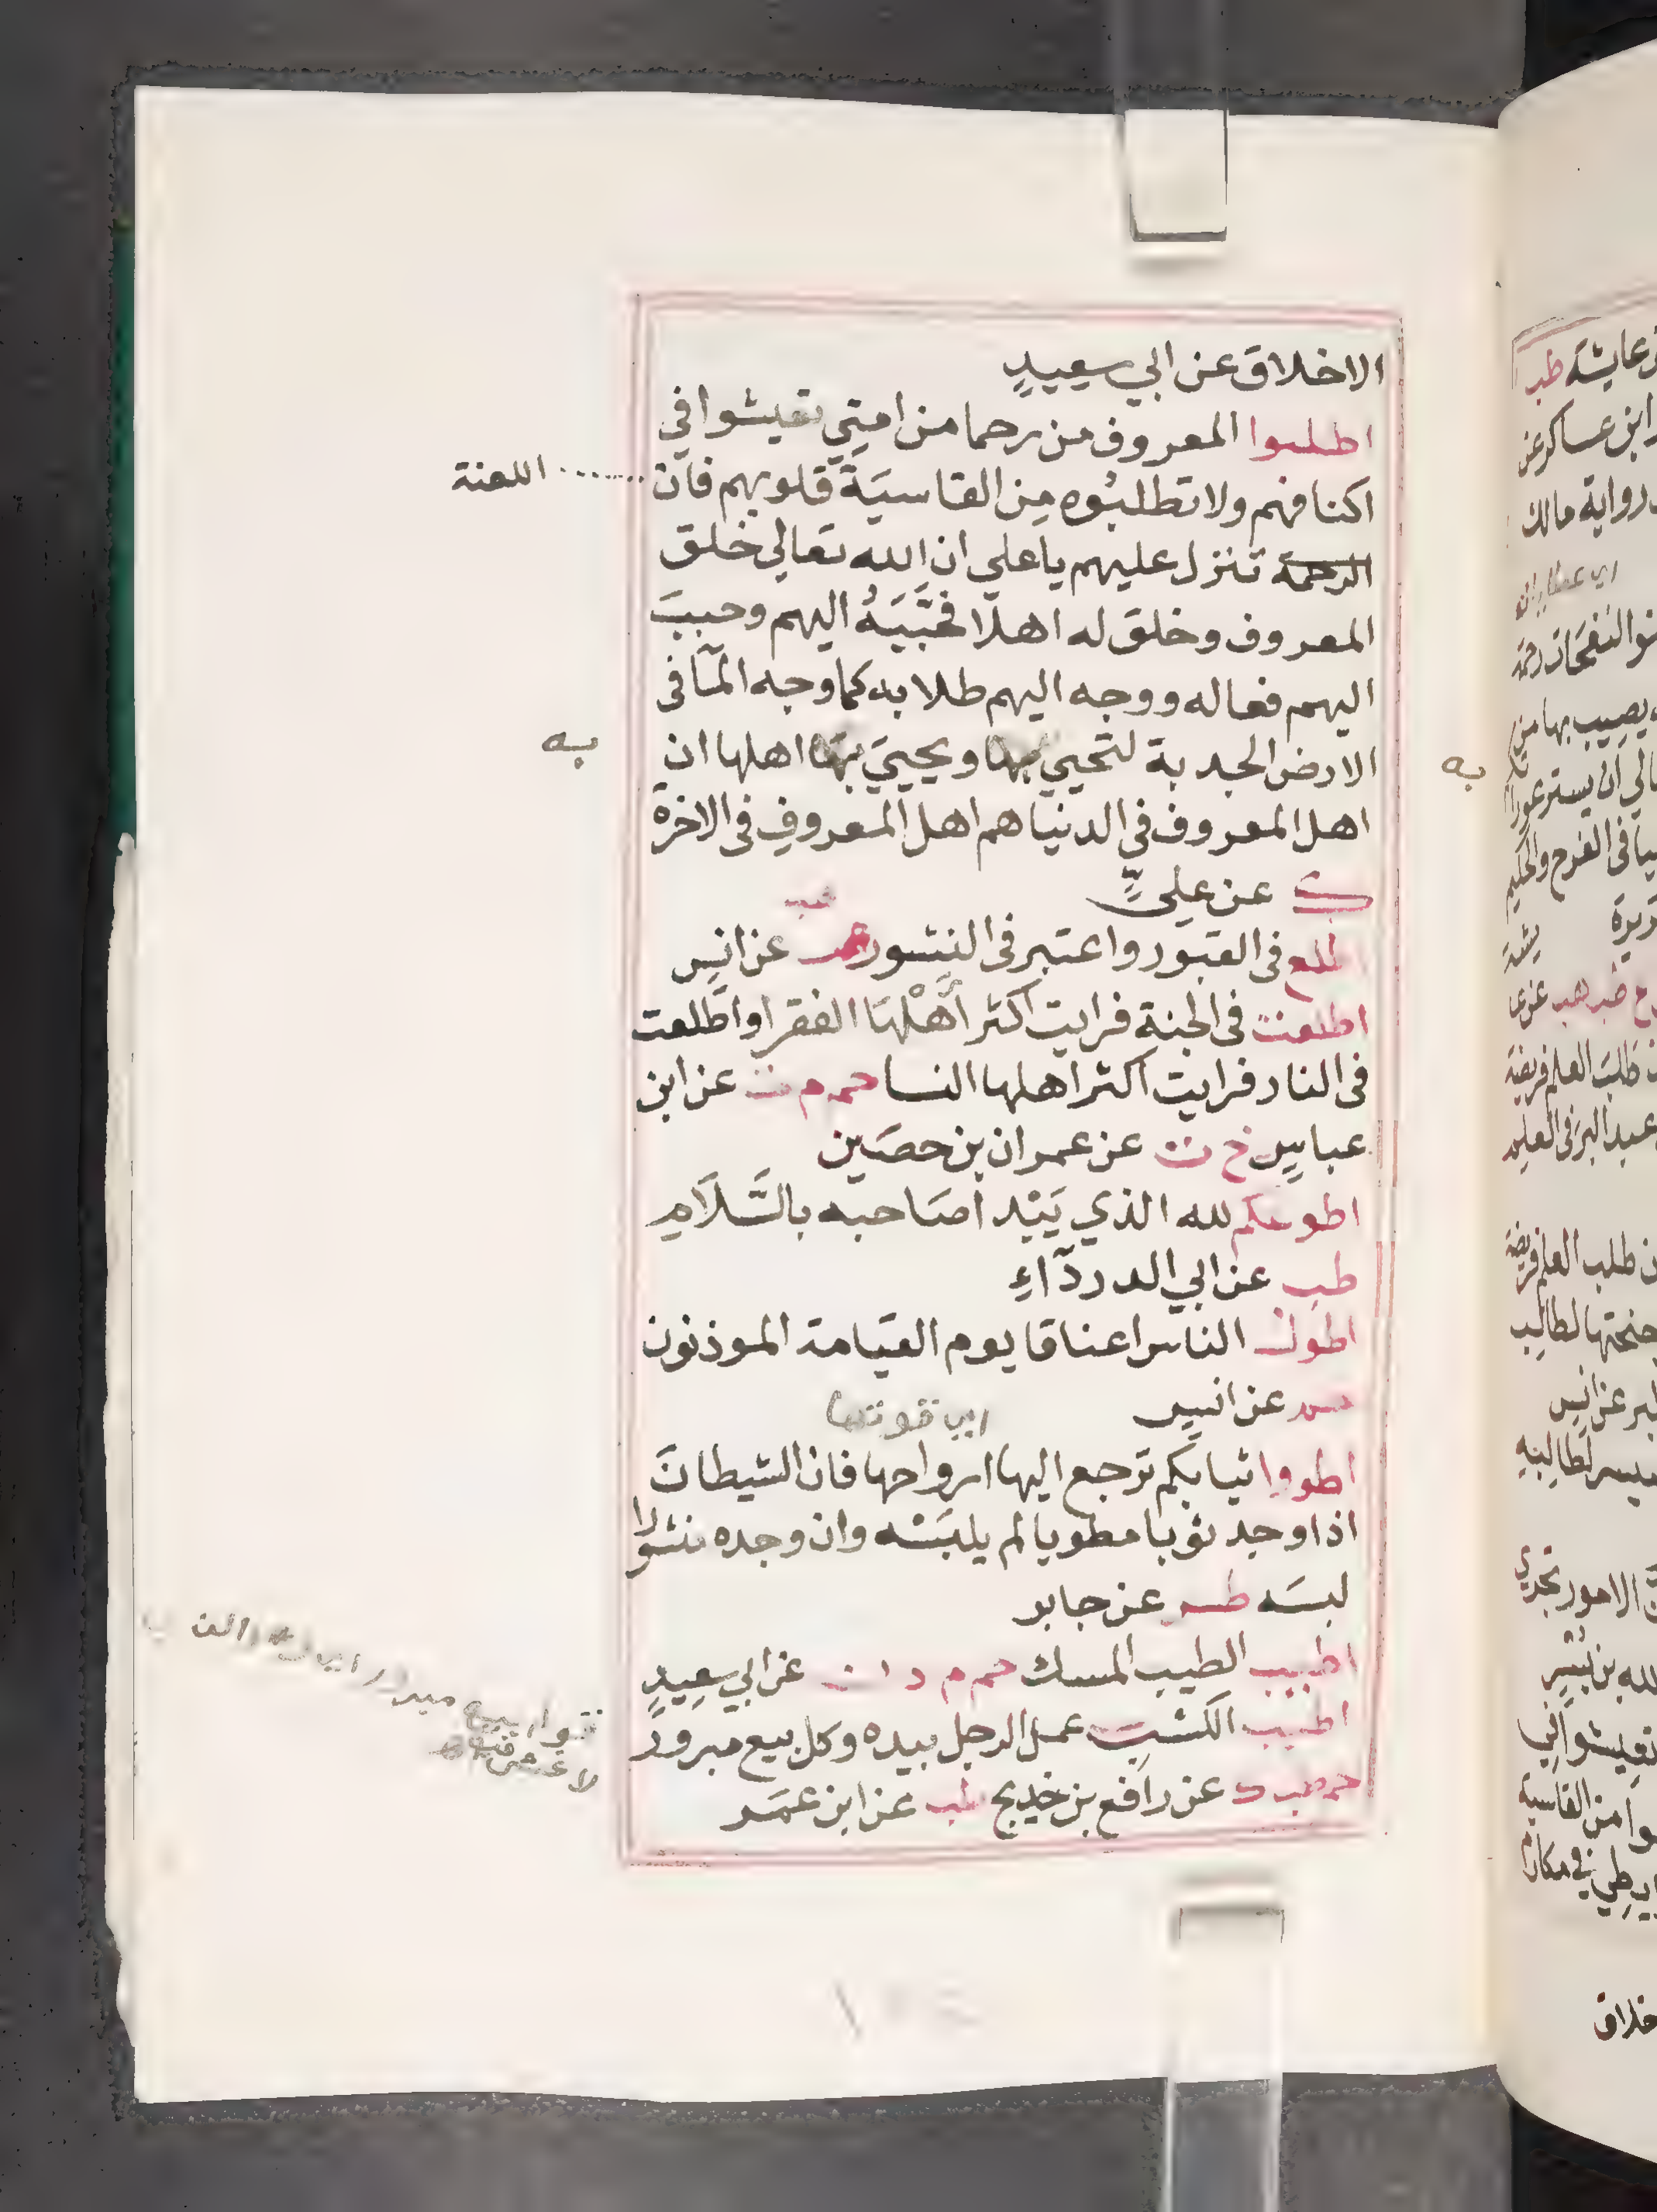 الاخلاق عن ابي سعيدٍ
اطلبوا المعروف من رحما من امتي تعيشوا في
اكنافهم ولا تطلبُوه مِن القاسيَة قلوبهم فان
اللعنة
الرحمة تنزل عليهم يا علي ان الله تعالي خلق
المعروف وخلق له اهلا فحَبَّبَهُ اليهم وحببَ
اليهم فعاله ووجه اليهم طلابه كما وجه المآ في
الارض الجدبة لتحيي بها ويحييَ بها اهلها ان
به
به
اهل المعروف في الدنيا هم اهل المعروفِ في الاخرة
ك عن عليٍّ
هب
اطلع في القبور واعتبر في النشور هب عن انسِ
اطلعت في الجنةِ فرايت اكثر أَهْلهَا الفقرا واطَّلعت
في النار فرايت اكثر اهلها النسا حم م ت عن ابن
عباسٍ خ ت عن عمران بن حصَين
اطوعكم لله الذي يَبْدا صَاحبه بالسَّلَامِ
طب عن ابي الدردَآءِ
اطول الناس اعناقا يوم القيَامة الموذنون
حم عن انسٍ
اي قوتها
اطووا ثيابكم ترجع اليها ارواحها فان الشيطانَ
اذا وجد ثوبا مطويا لم يلبَسْه وان وجده منشورا
لبسَه طس عن جابر
اطيب الطيب المسك حم م د ن عن ابي سعِيدٍ
اطيب الكسْبِ عمل الرجل بيده وكل بيع مبرورٍ
حم طب ك عن رافع بن خديج طب عن ابن عمَر